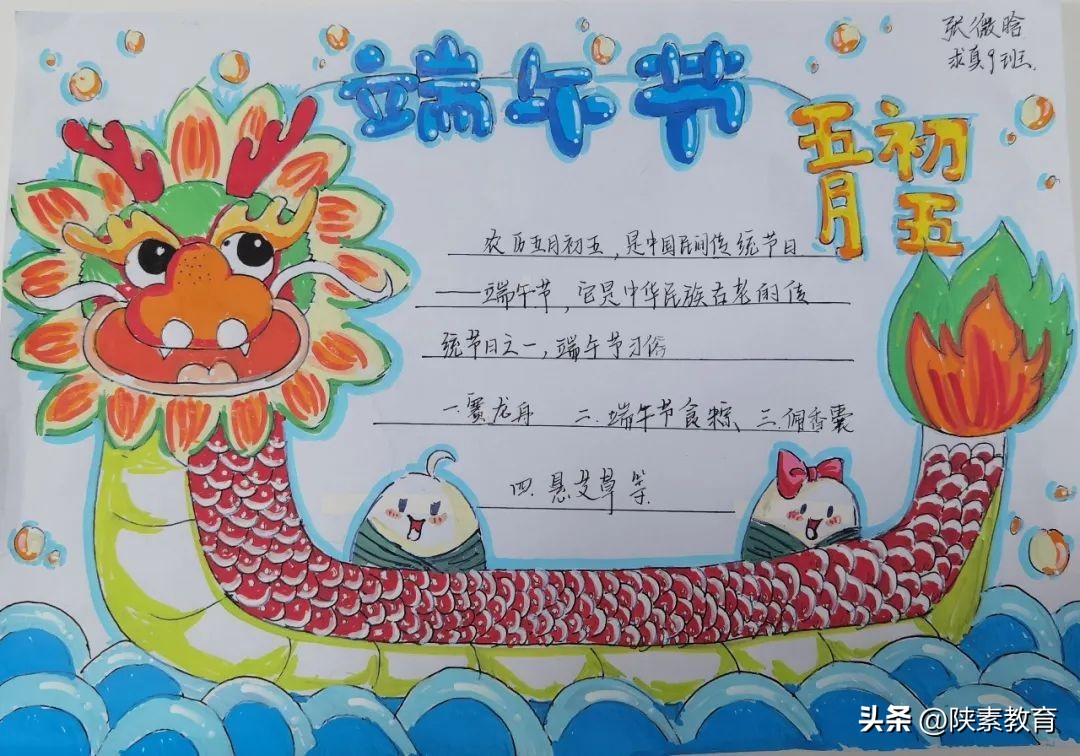 张薇晗
求真9班
端午节
五月
初五
农历五月初五,是中国民间传统节日
——端午节,它是中华民族古老的传
统节日之一,端午节习俗
一.赛龙舟 二.端午节食粽 三.佩香囊
四.悬艾草等
头条 @陕素教育